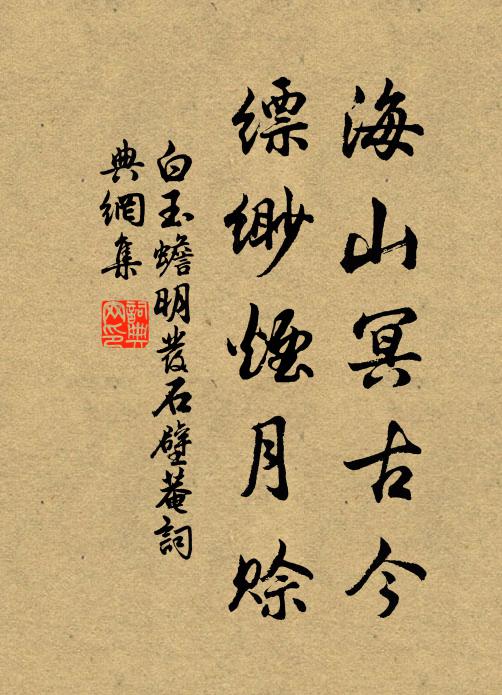 海山冥古今
缥缈煙月赊
白玉蟾明发石壁菴詞
典網集
詞典
网印